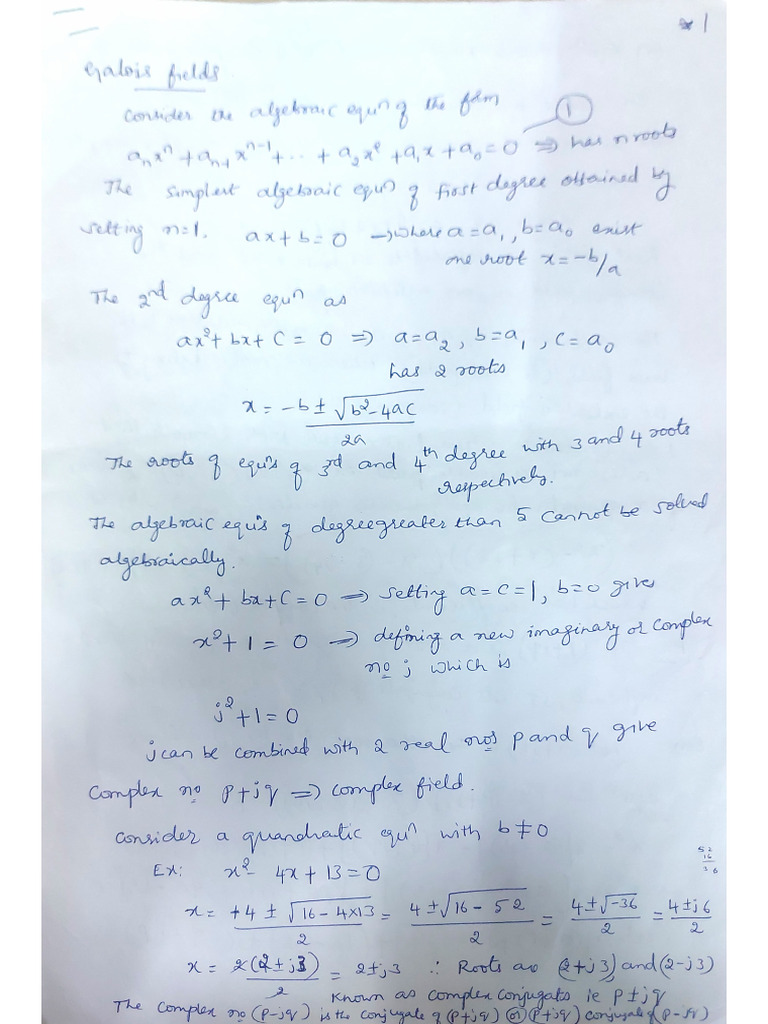 * 1
Galois fields
Consider the algebraic equn of the form
aₙxⁿ + aₙ₋₁ xⁿ⁻¹ + ... + a₂x² + a₁x + a₀ = 0 ⇒ has n roots ①
The simplest algebraic equn of first degree obtained by
setting n=1. ax + b = 0 → where a = a₁, b = a₀ exist
one root x = -b/a
The 2nd degree equn as
ax² + bx + C = 0 ⇒ a = a₂, b = a₁, c = a₀
has 2 roots
x = -b ± √(b² - 4ac) / 2a
The roots of equns of 3rd and 4th degree with 3 and 4 roots
respectively.
The algebraic equns of degree greater than 5 cannot be solved
algebraically.
ax² + bx + C = 0 ⇒ setting a = c = 1, b = 0 gives
x² + 1 = 0 ⇒ defining a new imaginary or complex
no j which is
j² + 1 = 0
j can be combined with 2 real nos p and q give
Complex no p + jq ⇒ complex field.
Consider a quandratic equn with b ≠ 0
52
16
36
Ex: x² - 4x + 13 = 0
x = +4 ± √(16 - 4×13) / 2 = 4 ± √(16 - 52) / 2 = 4 ± √-36 / 2 = 4 ± j6 / 2
x = 2(2 ± j3) / 2 = 2 ± j3 ∴ Roots are (2 + j3) and (2 - j3)
Known as complex conjugates ie p ± jq
The complex no (p - jq) is the conjugate of (p + jq) (or) (p + jq) conjugate of (p - jq)